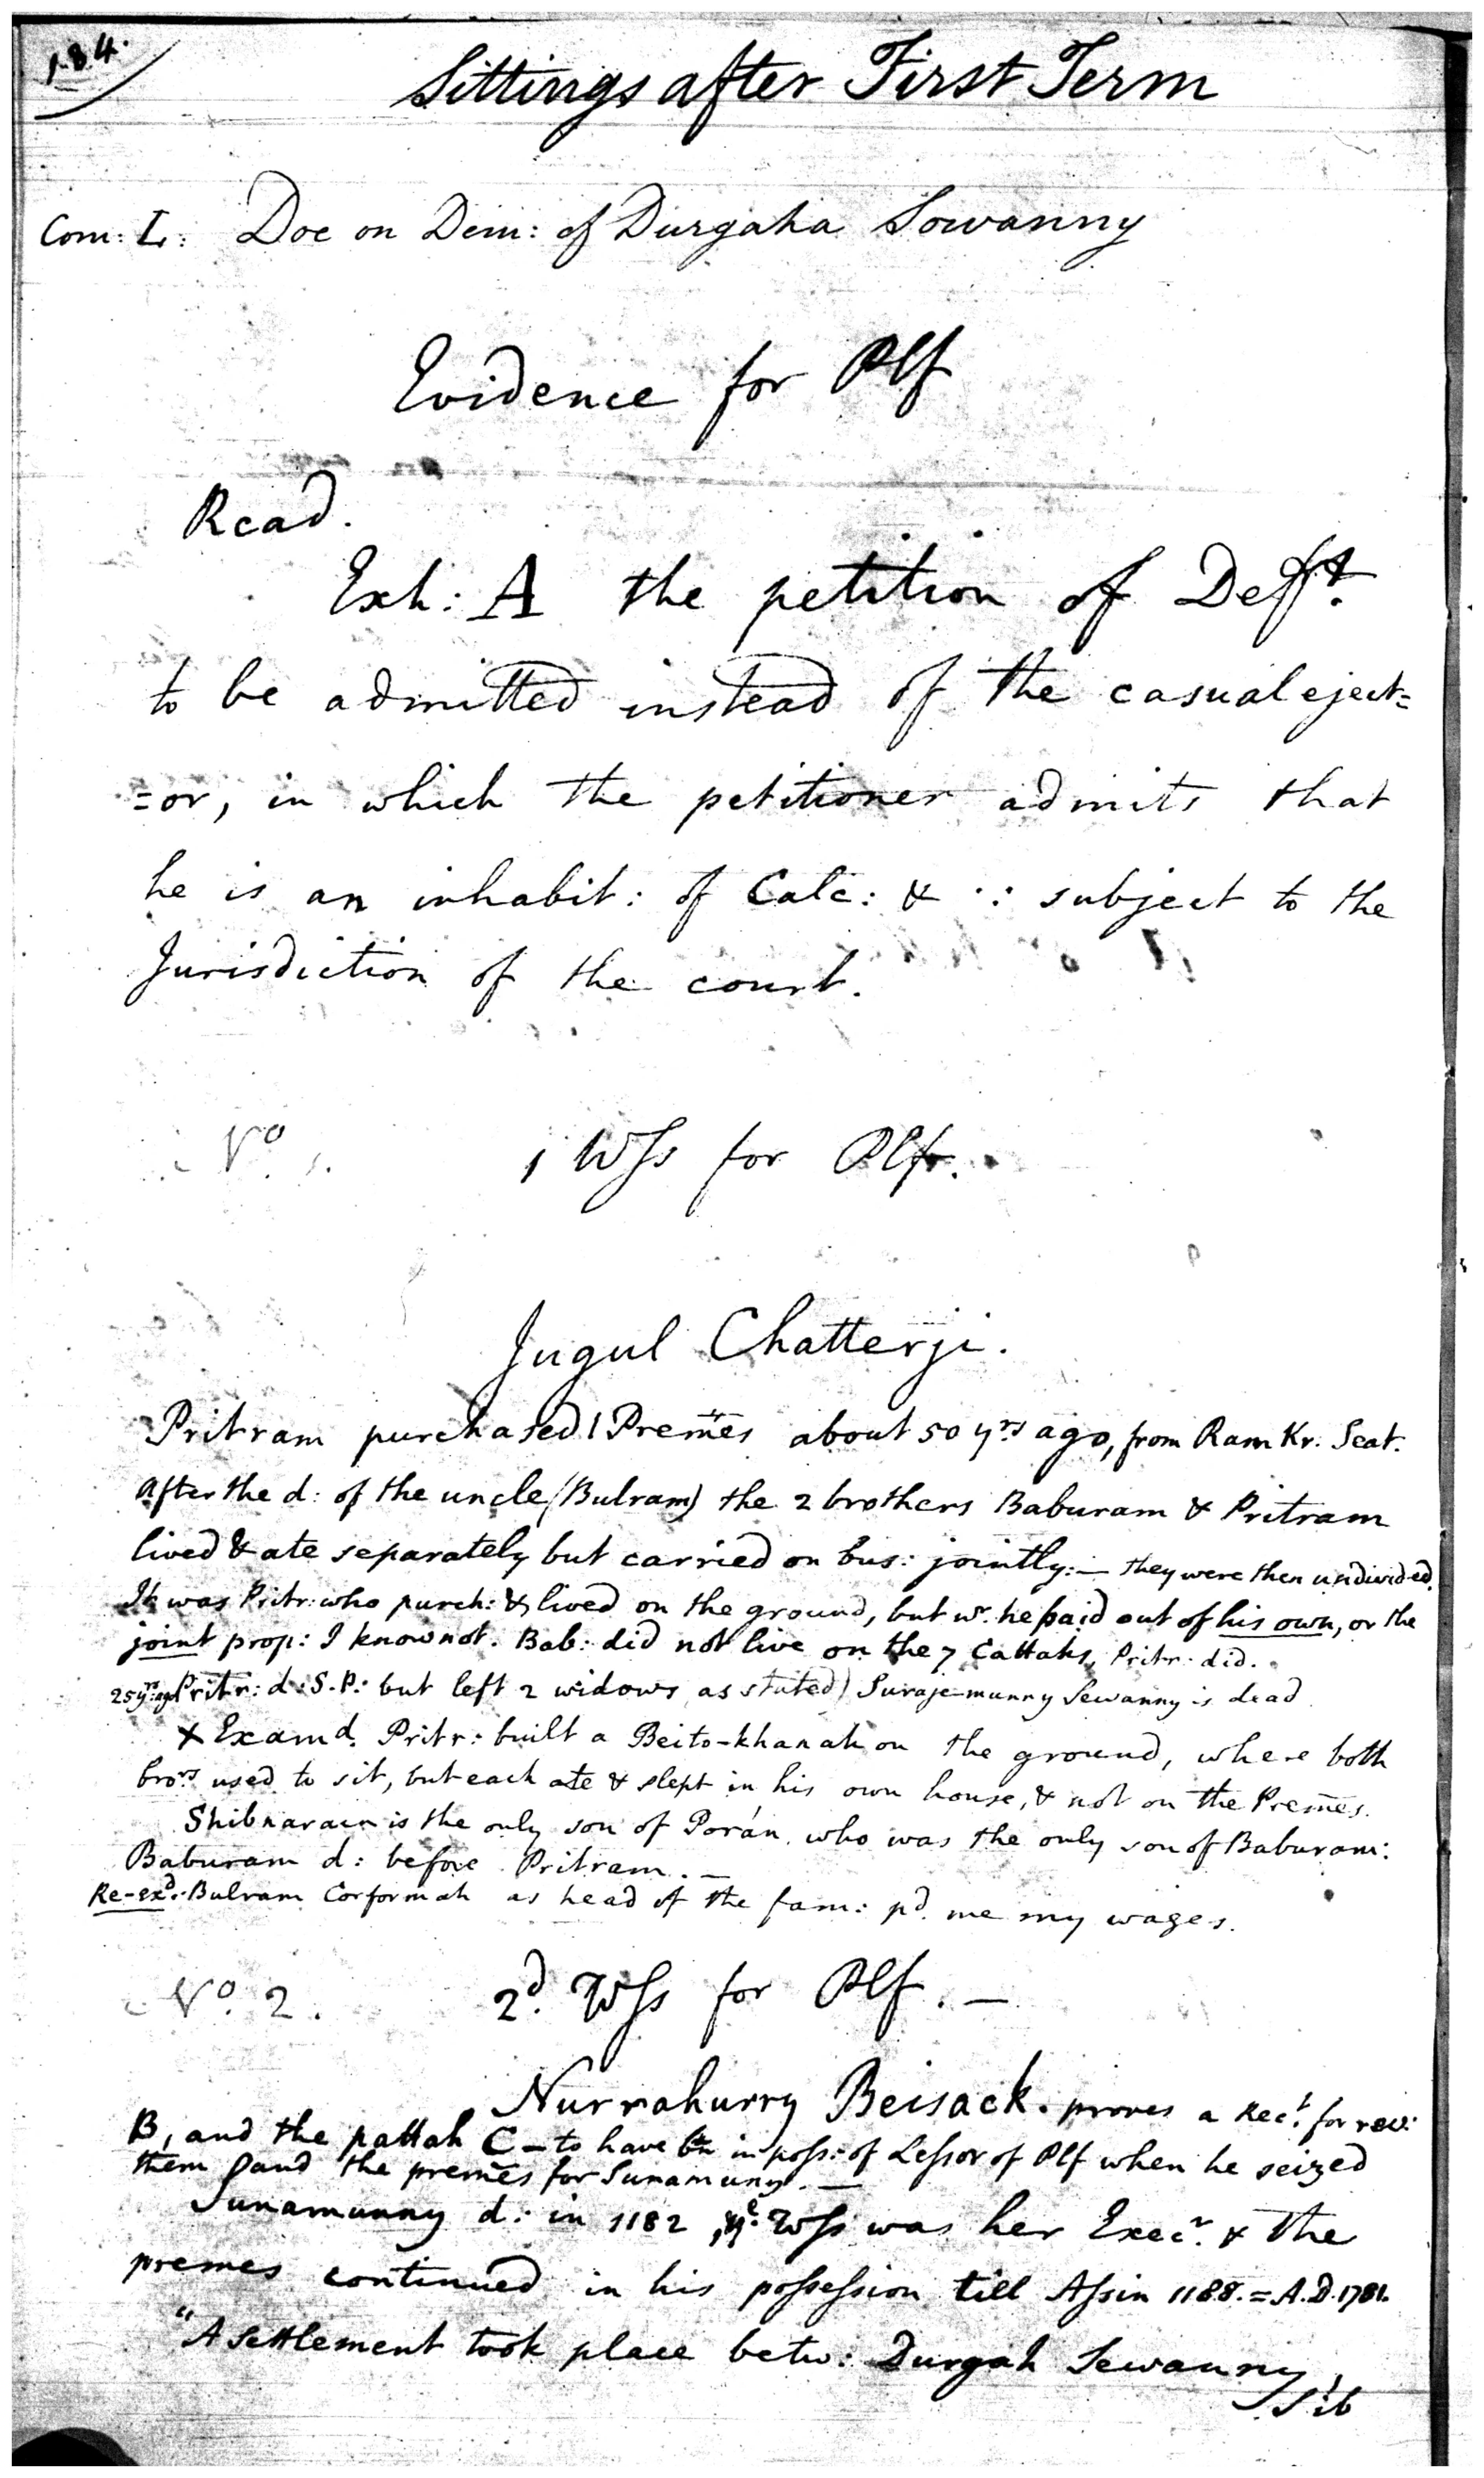 184.
Sittings after First Term
Com: L: Doe on Dem: of Durgaha Sowanny
Evidence for Plf
Read.
Exh: A the petition of Defft.
to be admitted instead of the casual eject=
=or, in which the petitioner admits that
he is an inhabit: of Calc: & ∴ subject to the
Jurisdiction of the court.
No. 1. 1 Wss for Plf.
Jugul Chatterji.
Pritram purchased Premes about 50 yrs ago, from Ram Kr. Seat.
After the d: of the uncle (Bulram) the 2 brothers Baburam & Pritram
lived & ate separately but carried on bus: jointly:— they were then undivided.
It was Pritr: who purch: & lived on the ground, but wr. he paid out of his own, or the
joint prop: I know not. Bab: did not live on the 7 Cattahs, Pritr: did.
25 yrs. ago Pritr: d: S.P.: but left 2 widows as stated) Surajemunny Sewanny is dead
X Examd. Pritr: built a Beito-khanah on the ground, where both
bros. used to sit, but each ate & slept in his own house, & not on the Premes.
Shibnarain is the only son of Porán, who was the only son of Baburam:
Baburam d: before Pritram.—
Re-exd. Bulram Corformah as head of the fam: pd. me my wages.
No. 2. 2d. Wss for Plf.—
Nurrahurry Beisack. proves a Rect. for rev:
B, and the pattah C — to have bn in poss: of Lessor of Plf when he seized
them and the premes for Sunamuny.—
Sunamunny d: in 1182, ye. Wss was her Execr. & the
premes continued in his possession till Assin 1188. = A.D. 1781.
"A settlement took place betw: Durgah Sewanny,
Sib